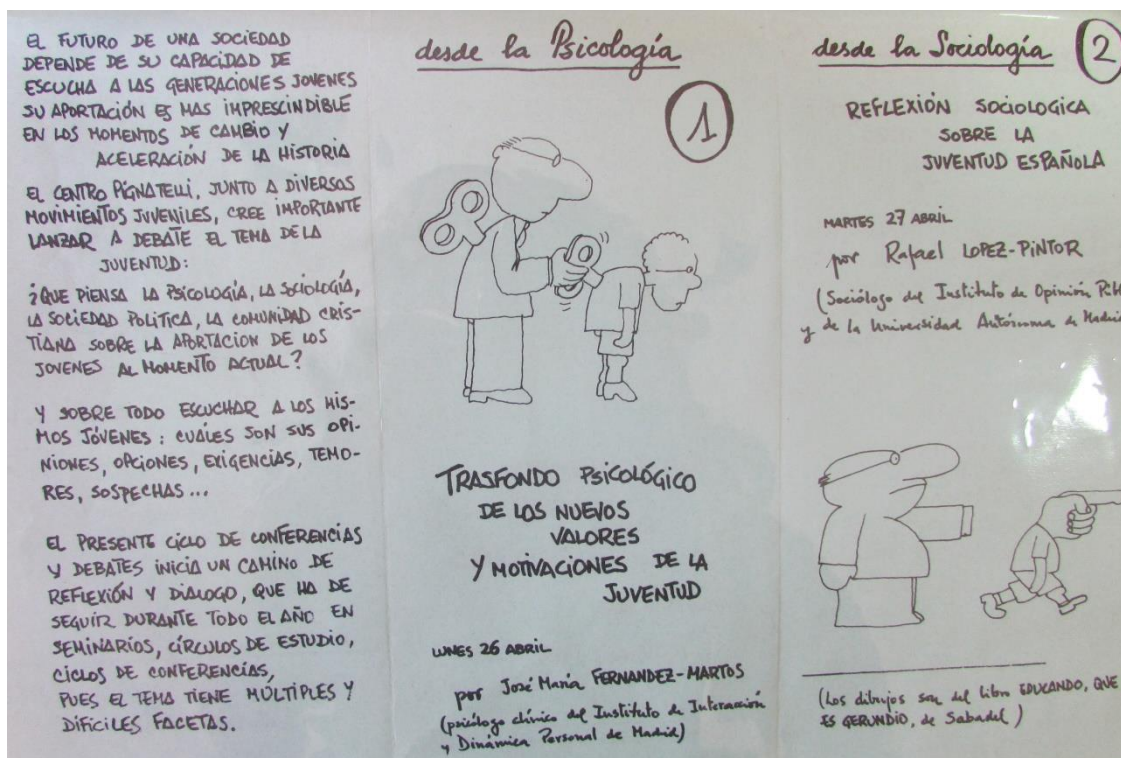 EL FUTURO DE UNA SOCIEDAD
DEPENDE DE SU CAPACIDAD DE
ESCUCHA A LAS GENERACIONES JOVENES
SU APORTACIÓN ES MAS IMPRESCINDIBLE
EN LOS MOMENTOS DE CAMBIO Y
ACELERACIÓN DE LA HISTORIA
EL CENTRO PIGNATELLI, JUNTO A DIVERSOS
MOVIMIENTOS JUVENILES, CREE IMPORTANTE
LANZAR A DEBATE EL TEMA DE LA
JUVENTUD:
¿QUE PIENSA LA PSICOLOGÍA, LA SOCIOLOGÍA,
LA SOCIEDAD POLITICA, LA COMUNIDAD CRIS-
TIANA SOBRE LA APORTACION DE LOS
JOVENES AL MOMENTO ACTUAL?
Y SOBRE TODO ESCUCHAR A LOS MIS-
MOS JÓVENES: CUALES SON SUS OPI-
NIONES, OPCIONES, EXIGENCIAS, TEMO-
RES, SOSPECHAS...
EL PRESENTE CICLO DE CONFERENCIAS
Y DEBATES INICIA UN CAMINO DE
REFLEXIÓN Y DIALOGO, QUE HA DE
SEGUIR DURANTE TODO EL AÑO EN
SEMINARIOS, CÍRCULOS DE ESTUDIO,
CICLOS DE CONFERENCIAS,
PUES EL TEMA TIENE MÚLTIPLES Y
DIFICILES FACETAS.
desde la Psicología
1
TRASFONDO PSICOLÓGICO
DE LOS NUEVOS
VALORES
Y MOTIVACIONES DE LA
JUVENTUD
LUNES 26 ABRIL
por José María FERNANDEZ-MARTOS
(psicólogo clínico del Instituto de Interacción
y Dinámica Personal de Madrid)
desde la Sociología 2
REFLEXIÓN SOCIOLOGICA
SOBRE LA
JUVENTUD ESPAÑOLA
MARTES 27 ABRIL
por Rafael LOPEZ-PINTOR
(Sociólogo del Instituto de Opinión
y de la Universidad Autónoma de
(Los dibujos son del libro EDUCANDO, QUE
ES GERUNDIO, de Sabadel)